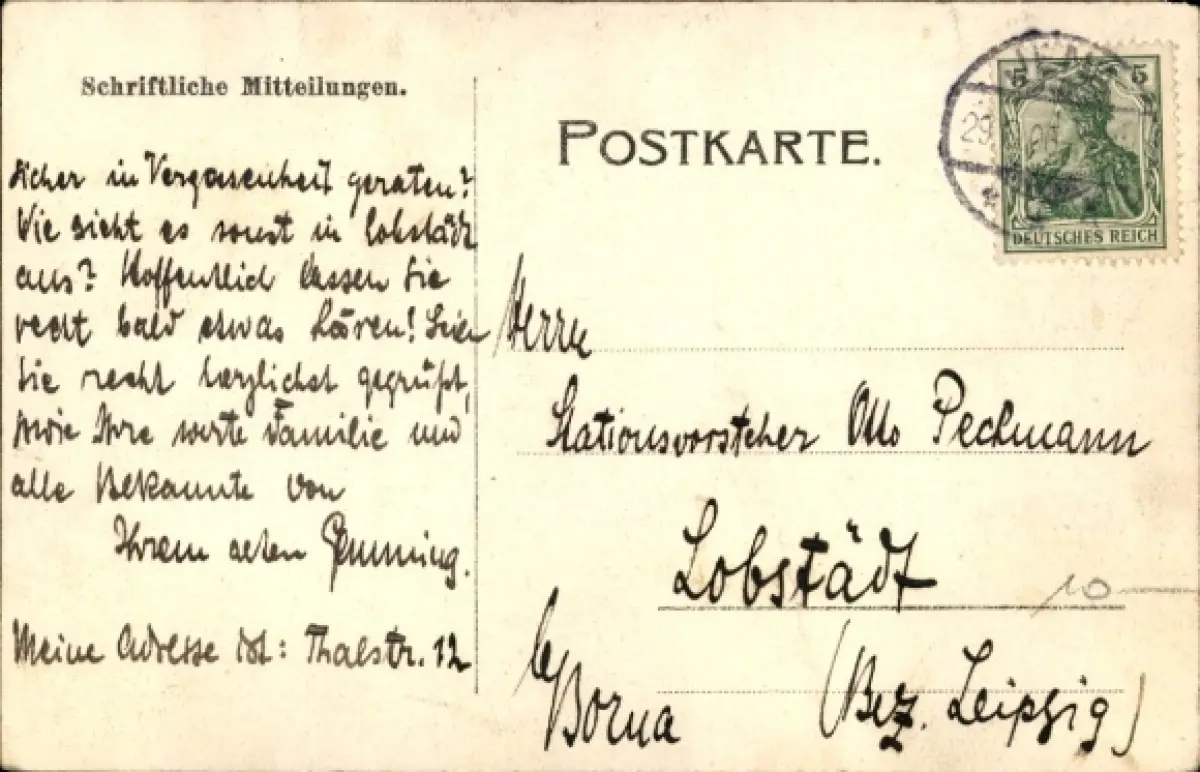 Schriftliche Mitteilungen.
POSTKARTE.
5 5
DEUTSCHES REICH
29.
sicher in Vergessenheit geraten?
Wie sieht es sonst in Lobstädt
aus? Hoffentlich lassen Sie
recht bald etwas hören! Seien
Sie recht herzlichst gegrüßt,
sowie Ihre werte Familie und
alle Bekannte von
Ihrem alten
Meine Adresse ist: Thalstr. 12
Herrn
Stationsvorsteher Otto Pechmann
Lobstädt
10
b/Borna
(Bez. Leipzig)